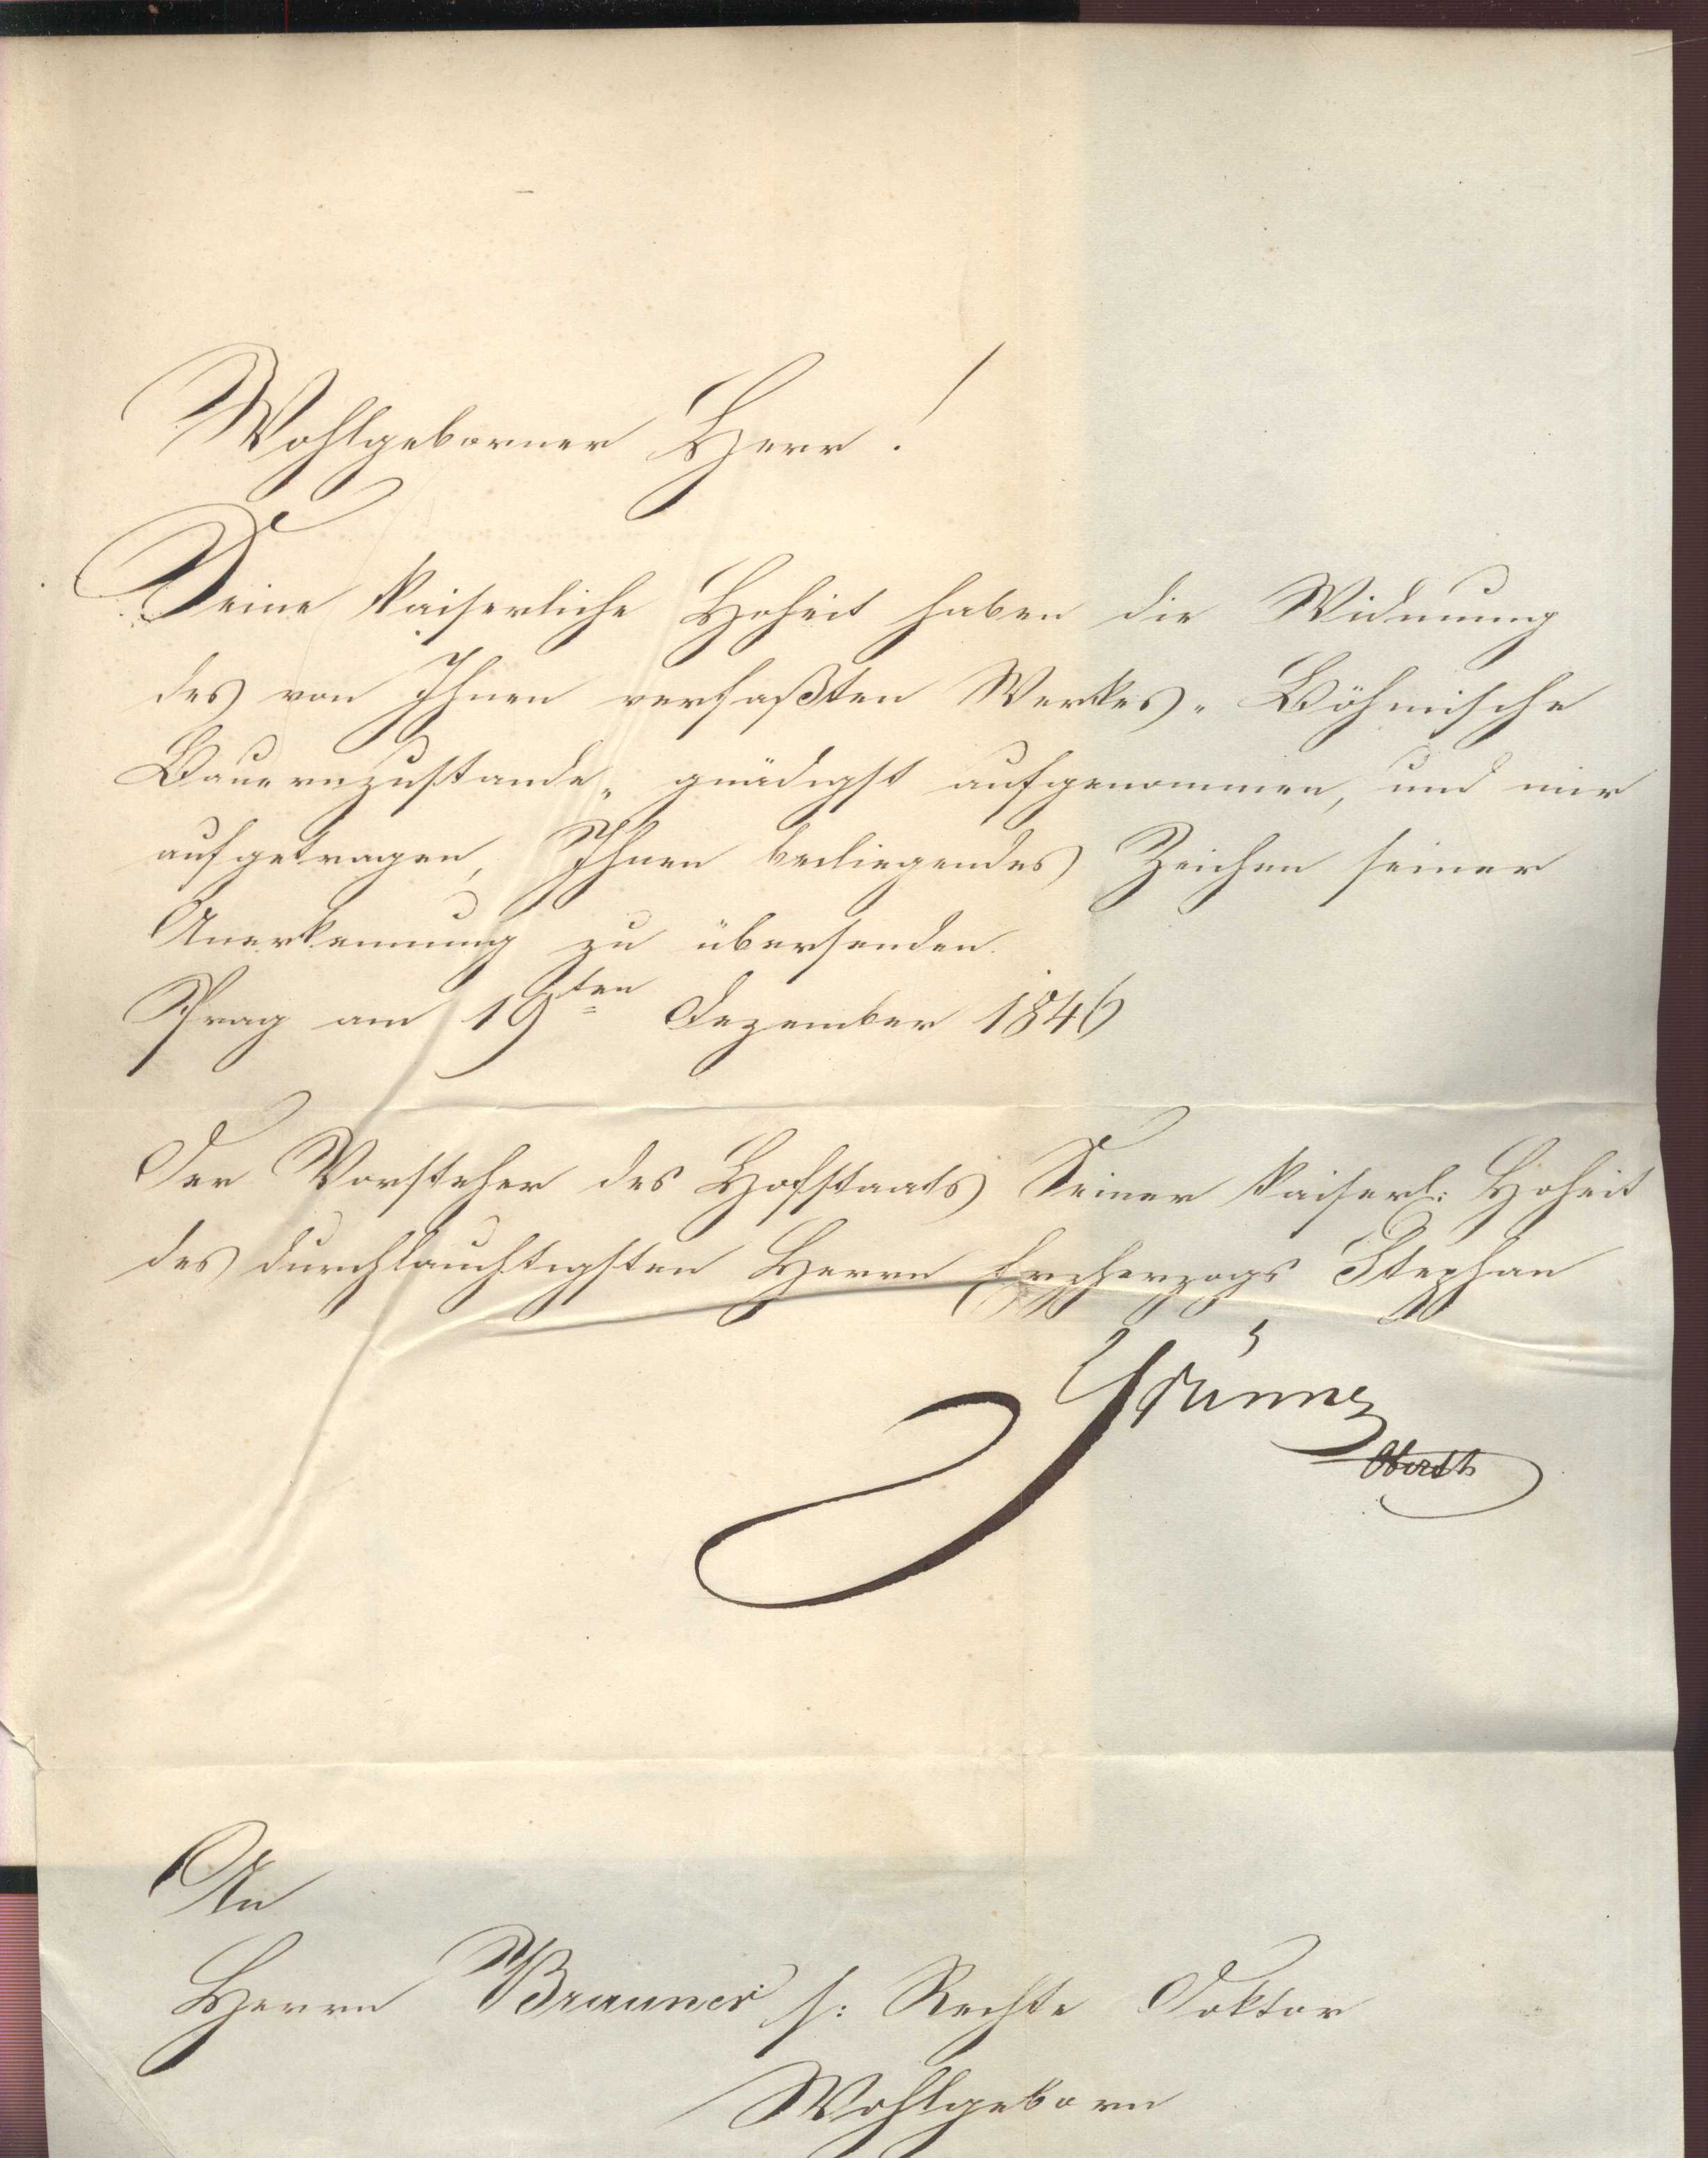 Wohlgeborner Herr!
Seine kaiserliche Hoheit haben die Widmung
des von Ihnen verfaßten Werkes „Böhmische
Bauernzustande„ gnädigst aufgenommen, und mir
aufgetragen, Ihnen beiliegendes Zeichen seiner
Anerkennung zu übersenden.
Prag am 19ten Dezember 1846
Der Vorsteher des Hofstaats Seiner kaiserl: Hoheit
des durchlauchtigsten Herrn Erzherzogs Stephan
Grünne
Oberst
An
Herrn Brauner j: Rechte Doktor
Wohlgeborn